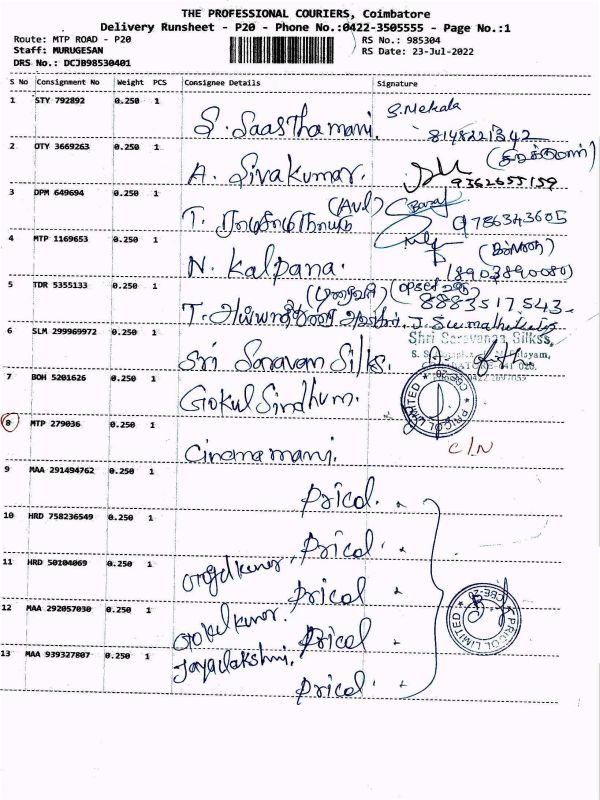 THE PROFESSIONAL COURIERS, Coimbatore
Delivery Runsheet - P20 - Phone No.:0422-3505555 - Page No.:1
Route: MTP ROAD - P20
Staff: MURUGESAN
DRS No.: DCJB98530401
RS No.: 985304
RS Date: 23-Jul-2022
S No Consignment No Weight PCS Consignee Details Signature
1 STY 792892 0.250 1 S. Saasthamani. S.Mekala
8148221342
2 OTY 3669263 0.250 1 A. Sivakumar.
9362655159
3 DPM 649694 0.250 1 T. 9786343605
4 MTP 1169653 0.250 1 N. Kalpana. (8903890080)
5 TDR 5355133 0.250 1 T. 8883517543
6 SLM 299969972 0.250 1 Sri Saravan Silks. Shri Saravanaa Silkss,
7 BOH 5201626 0.250 1 Gokul Sindhum. PRICOL LIMITED CBE-20
8 MTP 279036 0.250 1 Cinemamani. C/N
9 MAA 291494762 0.250 1 Pricol.
10 HRD 758236549 0.250 1 Pricol.
11 HRD 50104069 0.250 1 Pricol
12 MAA 292057030 0.250 1 Gokulkumar. Pricol PRICOL LIMITED CBE-20
13 MAA 939327807 0.250 1 Jayalakshmi. Pricol.